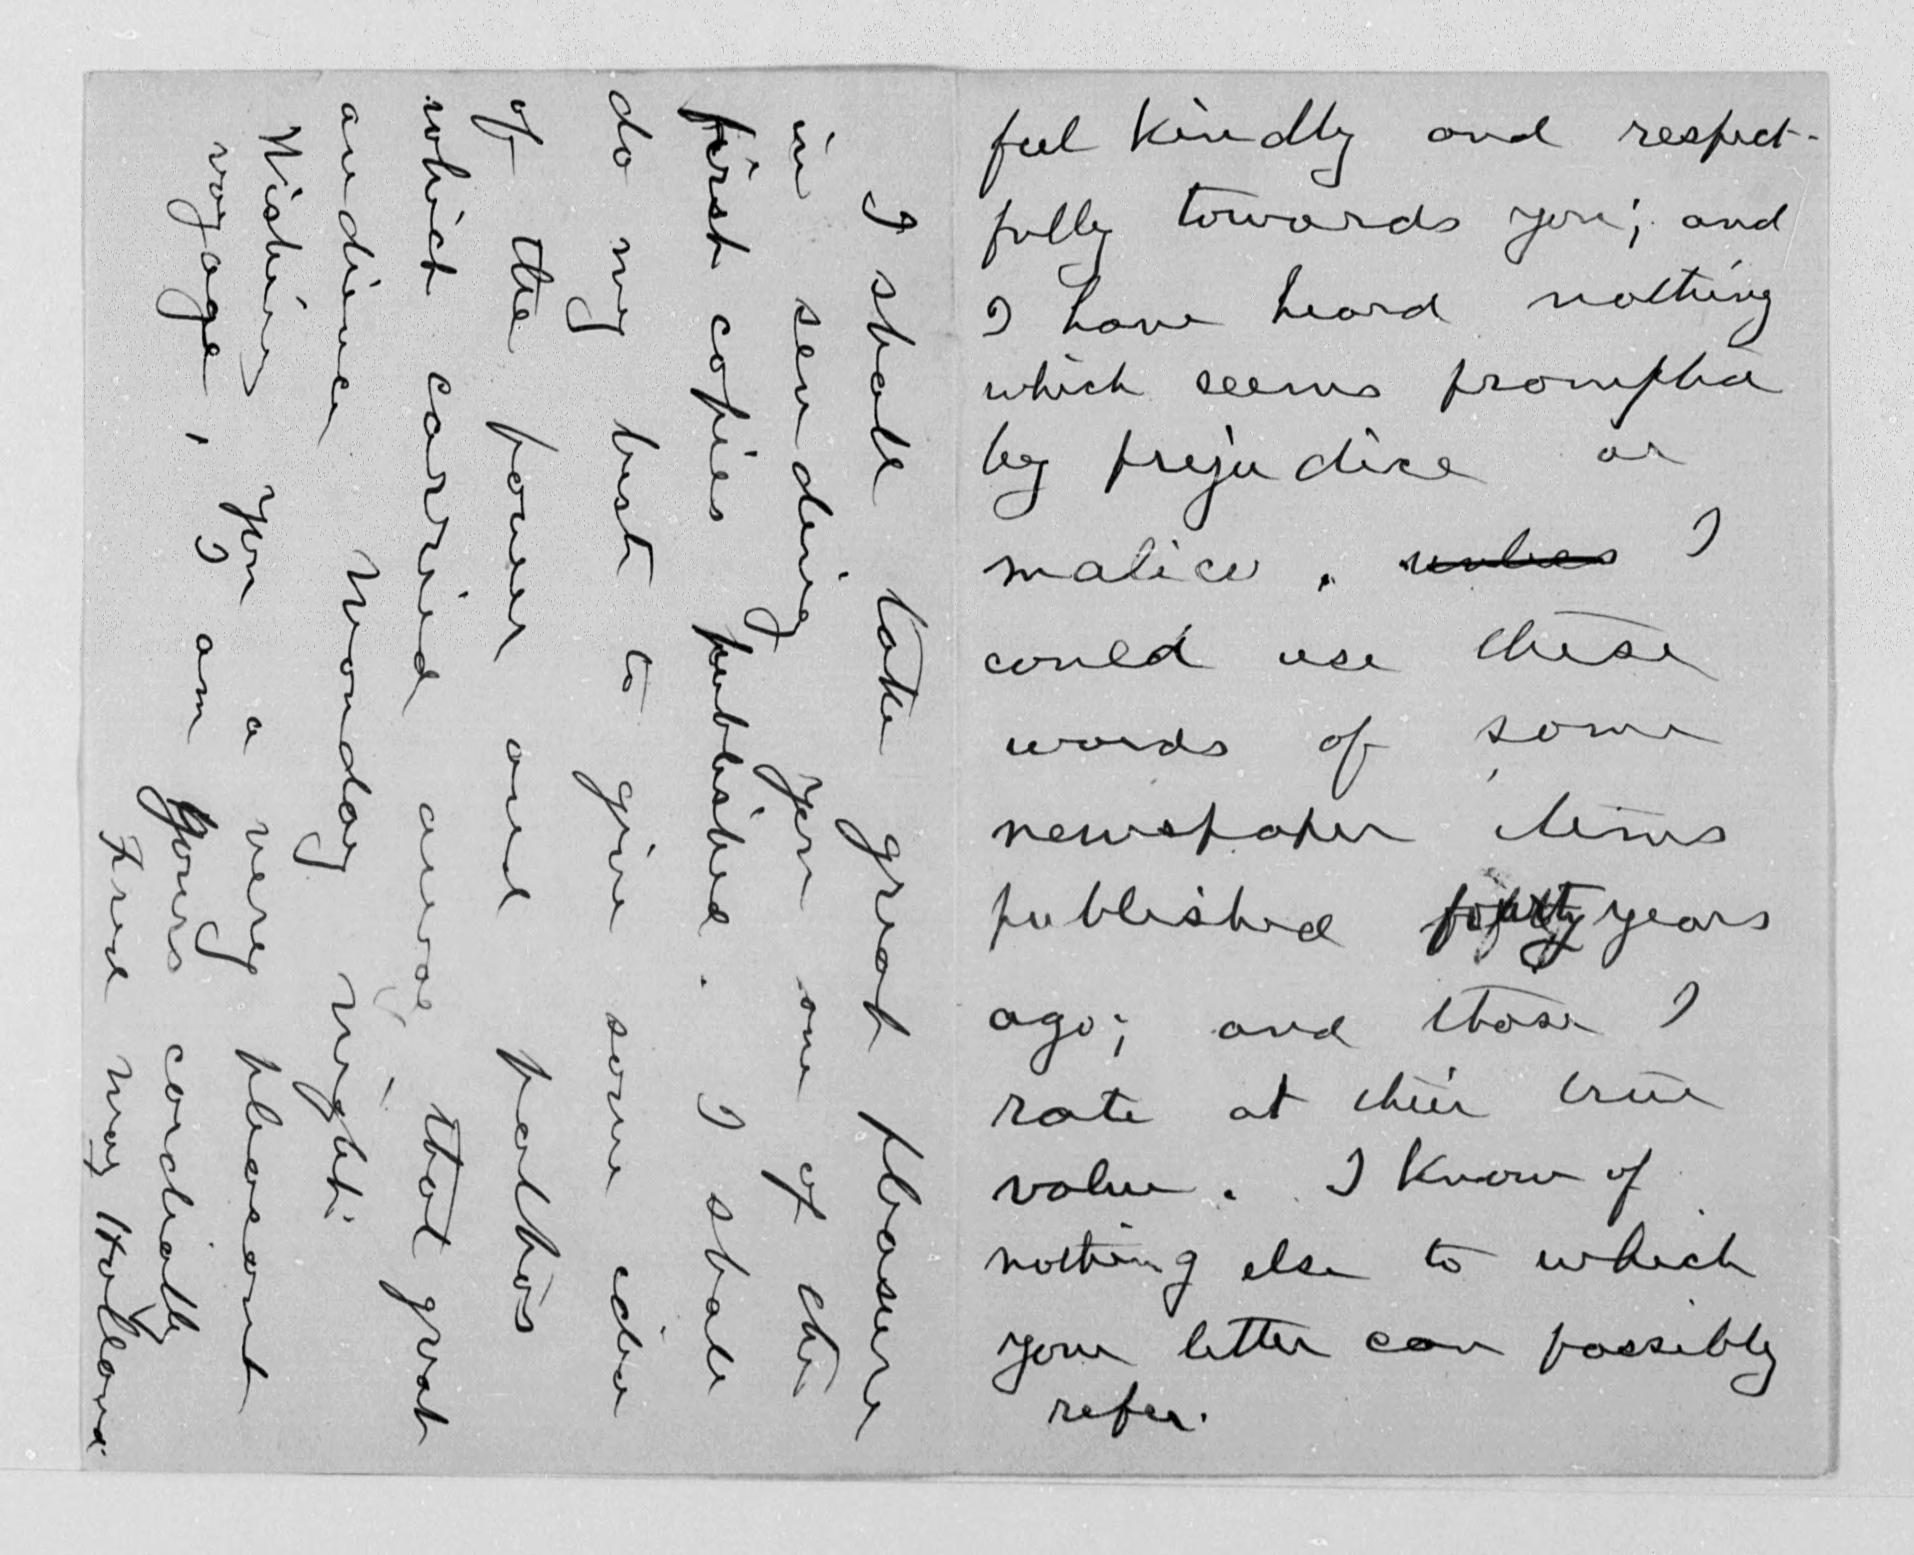 feel kindly and respect-
fully towards you; and
I have heard nothing
which seems prompted
by prejudice or
malice. unless I
could use these
words of some
newspaper items
published forty years
ago; and those I
rate at their true
value. I know of
nothing else to which
your letter can possibly
refer.
I shall take great pleasure
in sending you one of the
first copies published. I shall
do my best to give some idea
of the power and pathos
which carried away that great
audience Monday night.
Wishing you a very pleasant
voyage, I am Yours cordially
Fred May Holland